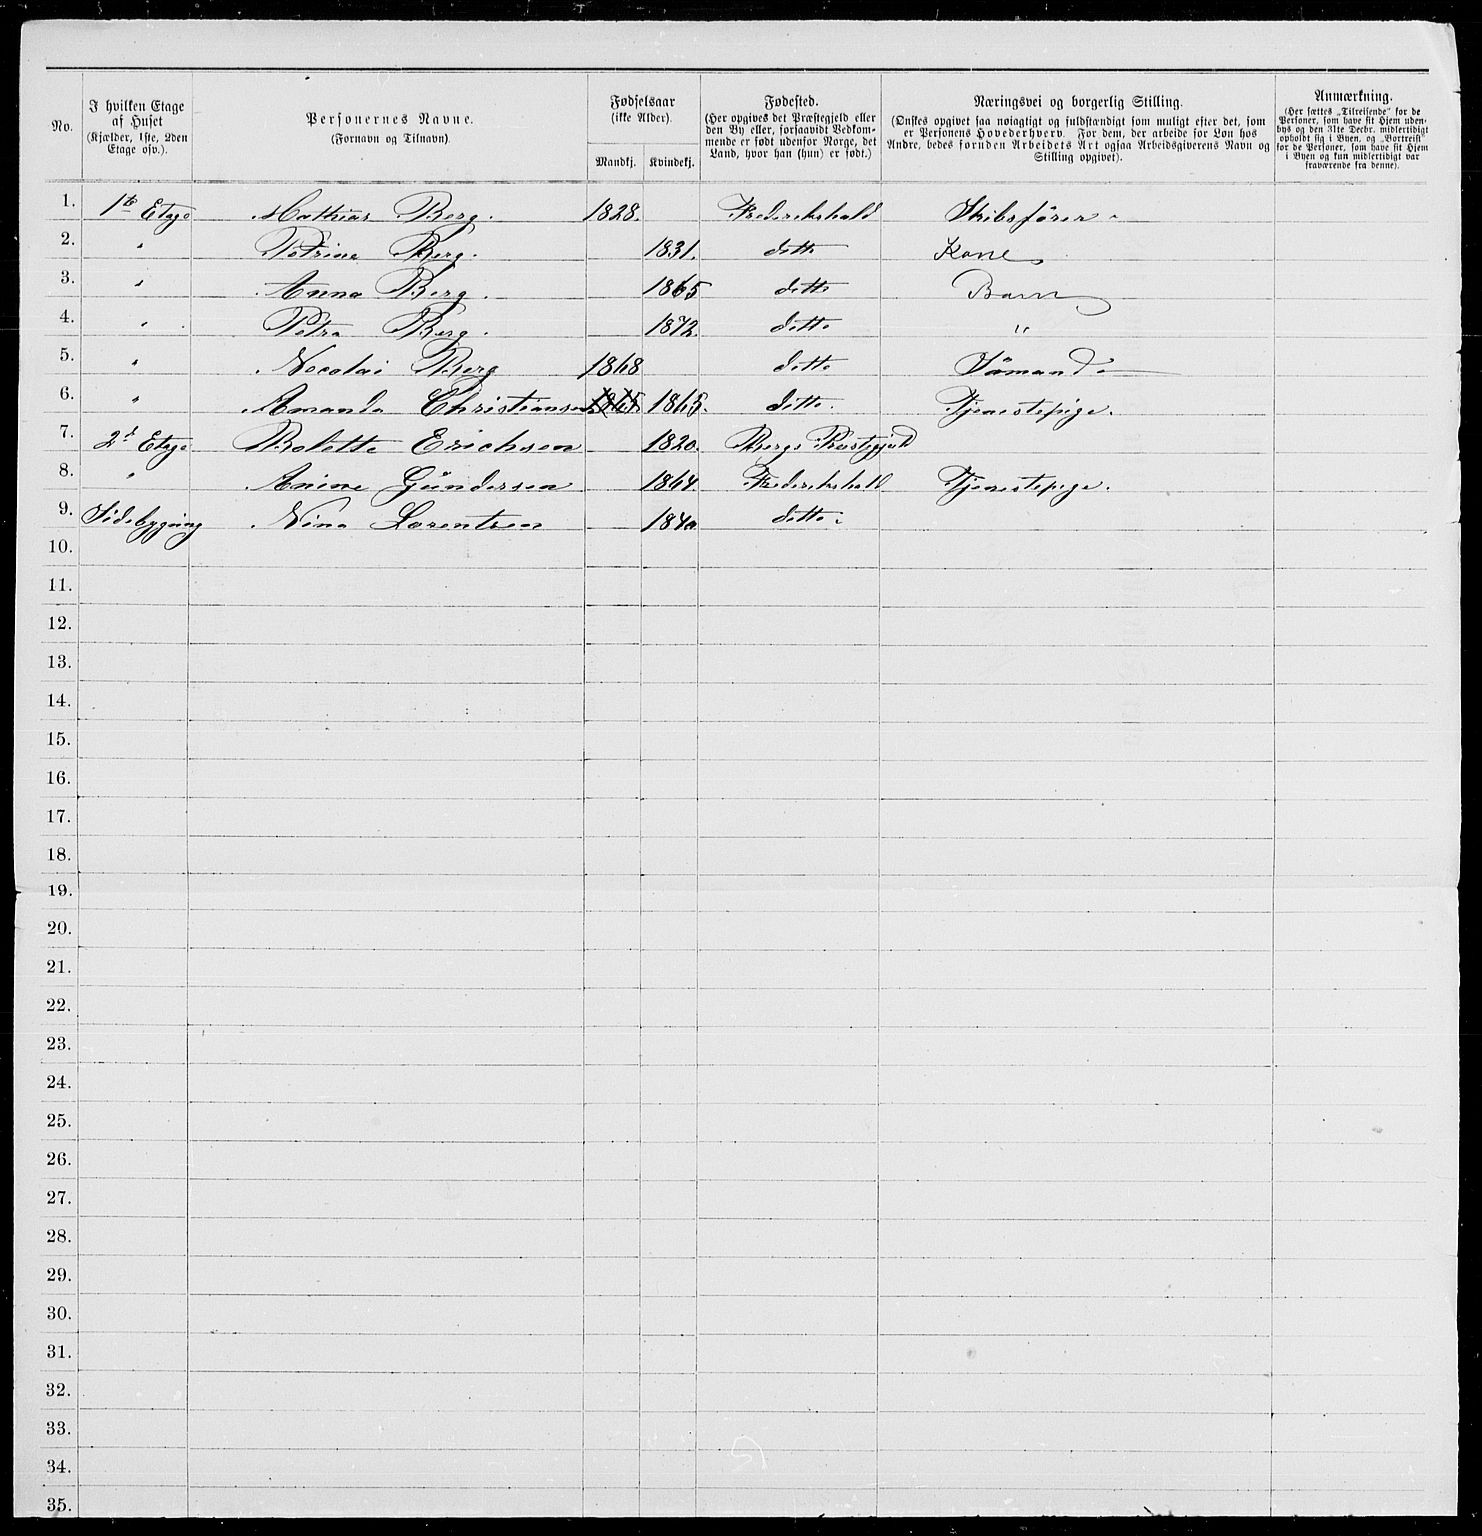 No.
I hvilken Etage
af Huset
(Kjælder, 1ste, 2den
Etage osv.).
Personernes Navne.
(Fornavn og Tilnavn).
Fødselsaar
(ikke Alder).
Mandkj. Kvindekj.
Fødested.
(Her opgives det Præstegjeld eller
den By eller, forsaavidt Vedkom-
mende er født udenfor Norge, det
Land, hvor han (hun) er født.)
Næringsvei og borgerlig Stilling.
(Ønskes opgivet saa nøiagtigt og fuldstændigt som muligt efter det, som
er Personens Hovederhverv. For dem, der arbeide for Løn hos
Andre, bedes foruden Arbeidets Art ogsaa Arbeidsgiverens Navn og
Stilling opgivet).
Anmærkning.
(Her sættes „Tilreisende" for de
Personer, som have sit Hjem uden-
bys og den 31te Decbr. midlertidigt
opholdt sig i Byen, og „Bortreist"
for de Personer, som have sit Hjem
i Byen og kun midlertidigt var
fraværende fra denne).
1. 1ste Etage Mathias Berg. 1828. Frederikshald Skibsfører
2. " Petrine Berg. 1831. ditto Kone
3. " Anna Berg. 1865 ditto Barn
4. " Petra Berg. 1872. ditto "
5. " Nocolai Berg 1868 ditto Sömand
6. " Amanda Christiansen 1865 1865. ditto. Tjenestepige.
7. 2d Etage Bolette Erichsen 1820. Bergs Præstgjeld
8. " Anine Gündersen 1864. Frederikshald Tjenestepige.
9. Sidebygning Nina Lorentsen 1840 ditto
10.
11.
12.
13.
14.
15.
16.
17.
18.
19.
20.
21.
22.
23.
24.
25.
26.
27.
28.
29.
30.
31.
32.
33.
34.
35.